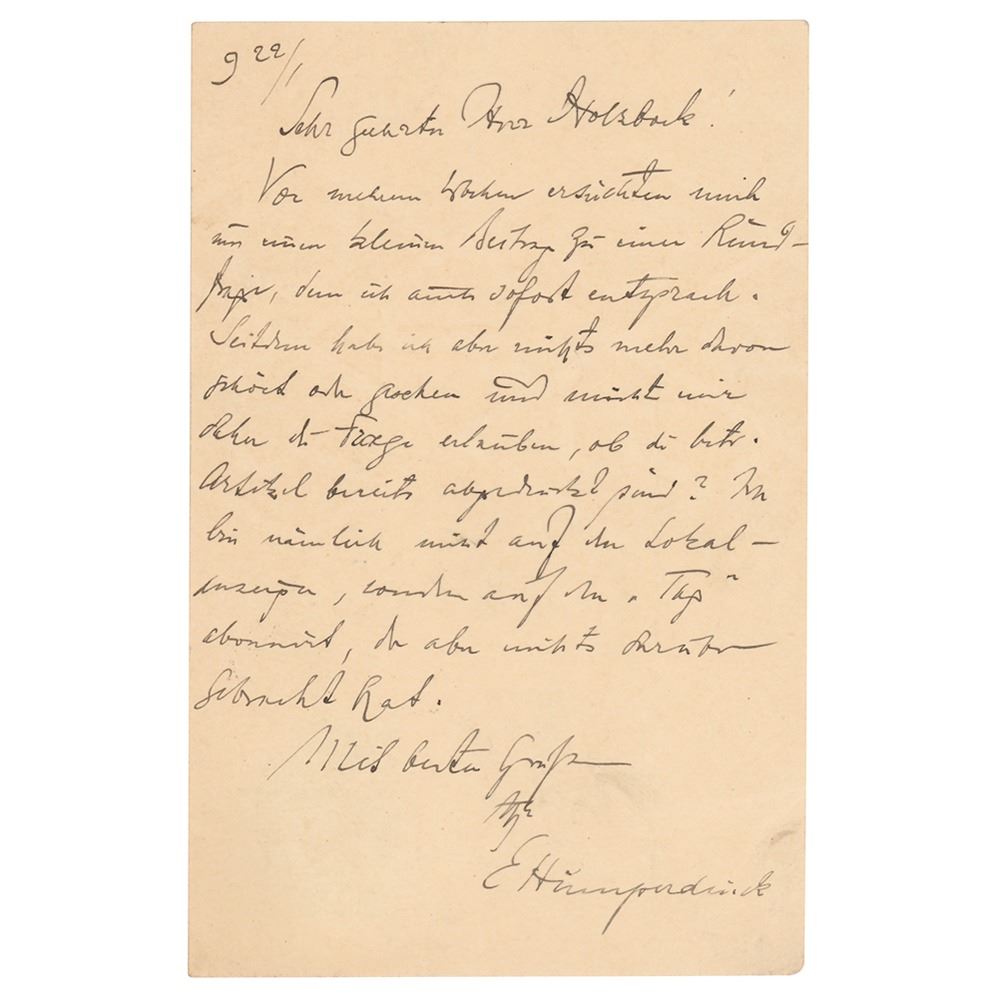 9 22/1
Sehr geehrter Herr Holzbock!
Vor mehreren Wochen ersuchten mich
um einen kleinen Beitrag zu einer Rund-
frage, dem ich auch sofort entsprach.
Seitdem habe ich aber nichts mehr davon
gehört oder gesehen und möcht mir
daher die Frage erlauben, ob die betr.
Artikel bereits abgedruckt sind? Ich
bin nämlich nicht auf den Lokal-
anzeiger, sondern auf den „Tag"
abonnirt, der aber nichts darüber
gebracht hat.
Mit besten Grüßen
Ihr
EHumperdinck